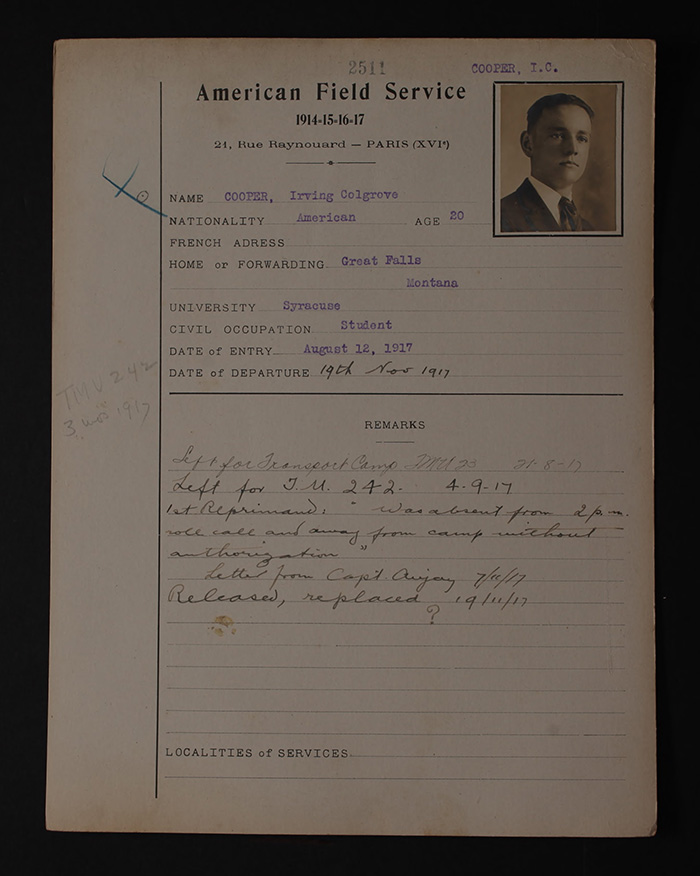 2511
COOPER, I.C.
American Field Service
1914-15-16-17
21, Rue Raynouard — PARIS (XVIe)
NAME COOPER, Irving Colgrove
NATIONALITY American AGE 20
FRENCH ADRESS
HOME or FORWARDING Great Falls
Montana
UNIVERSITY Syracuse
CIVIL OCCUPATION Student
DATE of ENTRY August 12, 1917
DATE of DEPARTURE 19th Nov 1917
TMU 242
3 1917
REMARKS
Left for Transport Camp TMU 21-8-17
Left for T.M. 242. 4-9-17
1st Reprimand: " Was absent from 2 p.m.
roll call and away from camp without
authorization "
Letter from Capt. 7/11/17
Released, replaced 19/11/17
?
LOCALITIES of SERVICES